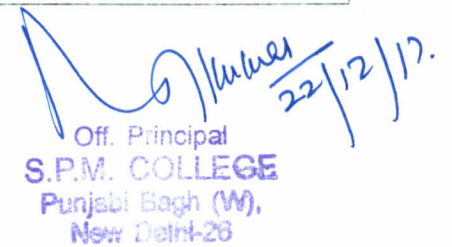 22/12/17.
Off. Principal
S.P.M. COLLEGE
Punjabi Bagh (W),
New Delhi-26